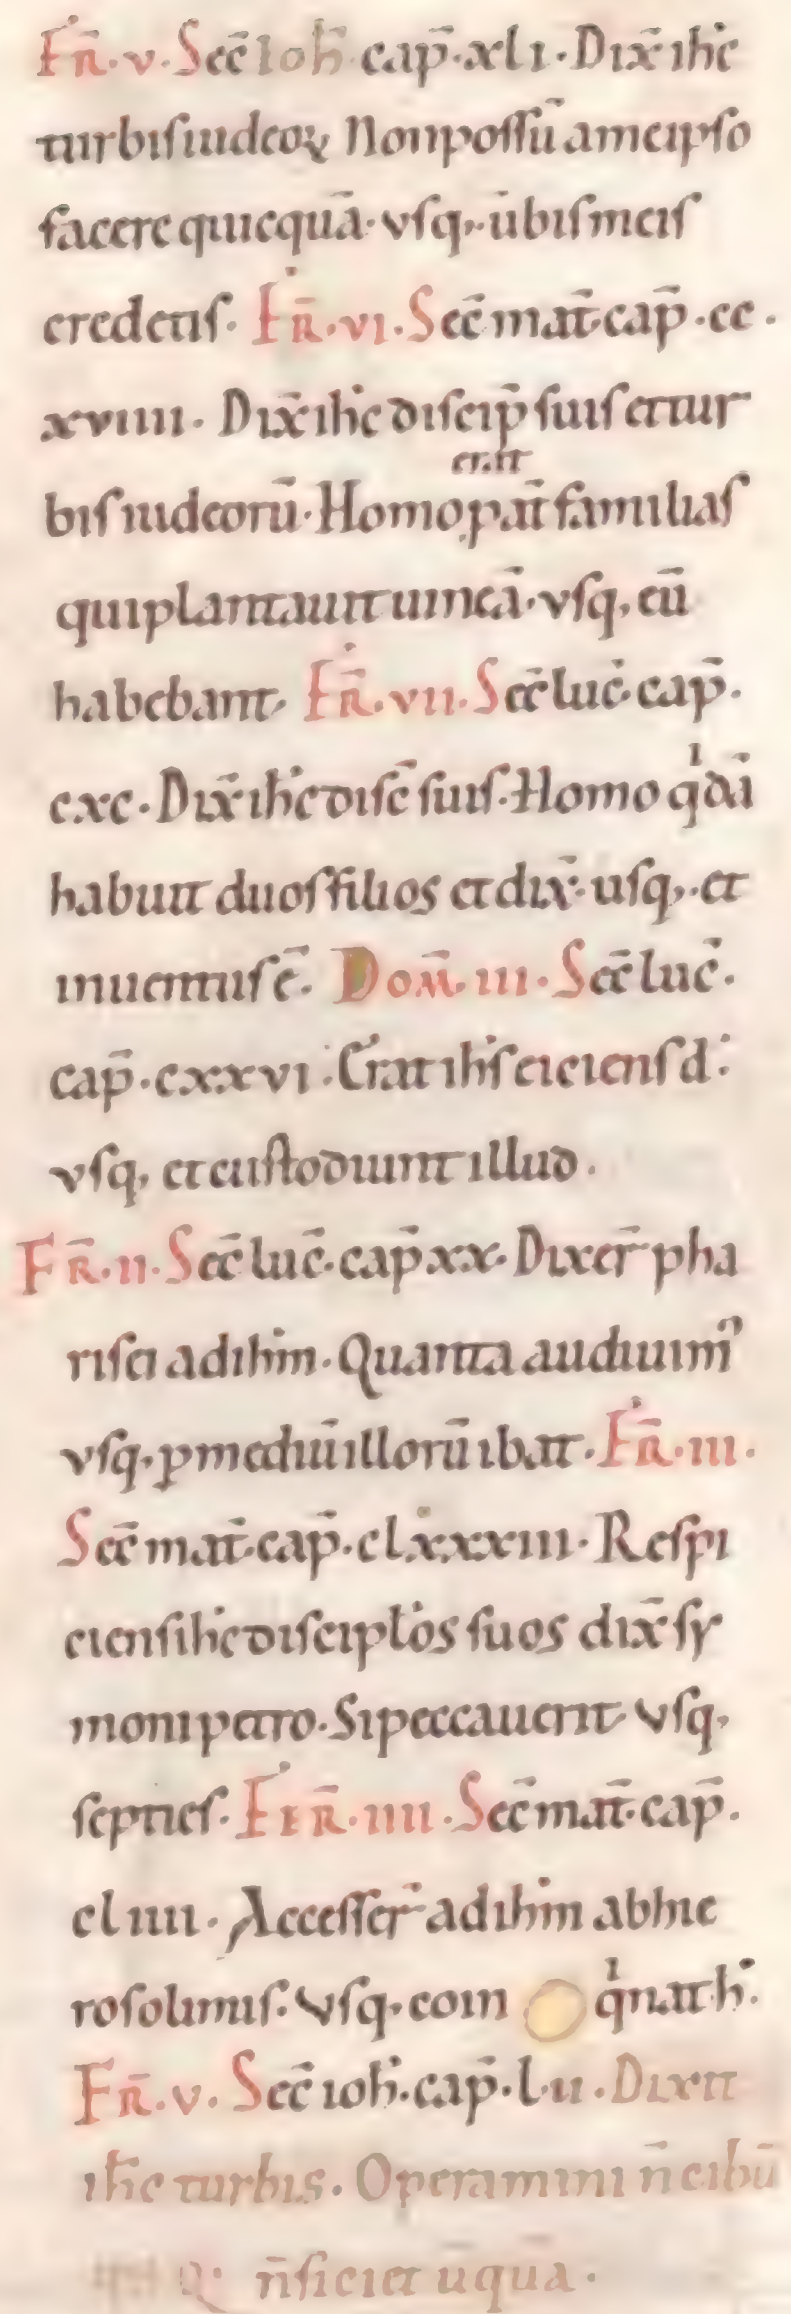 FR̄·v·Sec̄ Ioh̄·cap̄·xli·Dix̄ ih̄c
turbis iudeoꝝ Non possū a meipso
facere quicquā·vsq; ūbis meis
credetis· FR̄·vi·Sec̄ mat̄·cap̄·cc·
xviiii· Dix̄ ih̄c discip̄ suis et tur
bis iudeorū·Homo erat pat̄ familias
qui plantauit uineā·vsq; eū
habebant· FR̄·vii·Sec̄ luc̄·cap̄·
cxc·Dix̄ ih̄c disc̄ suis·Homo qͥdā
habuit duos filios et dix̄·usq;·et
inuentus ē· DOM̄·iii·Sec̄ luc̄·
cap̄·cxxvi·Erat ih̄s eiciens d·
vsq; et custodiunt illud·
FR̄·ii·Sec̄ luc̄·cap̄ xx·Dixer̄ pha
risei ad ih̄m·Quanta audiuimꝰ
vsq; ꝑ mediū illorū ibat·FR̄·iii·
Sec̄ mat̄·cap̄·clxxxiii·Respi
ciens ih̄c discipl̄os suos dix̄ sy
moni petro·Si peccauerit vsq;
septies·FER̄·iiii·Sec̄ mat̄·cap̄·
cliiii·Accesser̄ ad ih̄m ab hie
rosolimis·Vsq; coin qͥnat h̄·
FR̄·v·Sec̄ ioh̄·cap̄·lii·Dixit
ih̄c turbis·Operamini n̄ cibū
n̄ siciet ūquā·